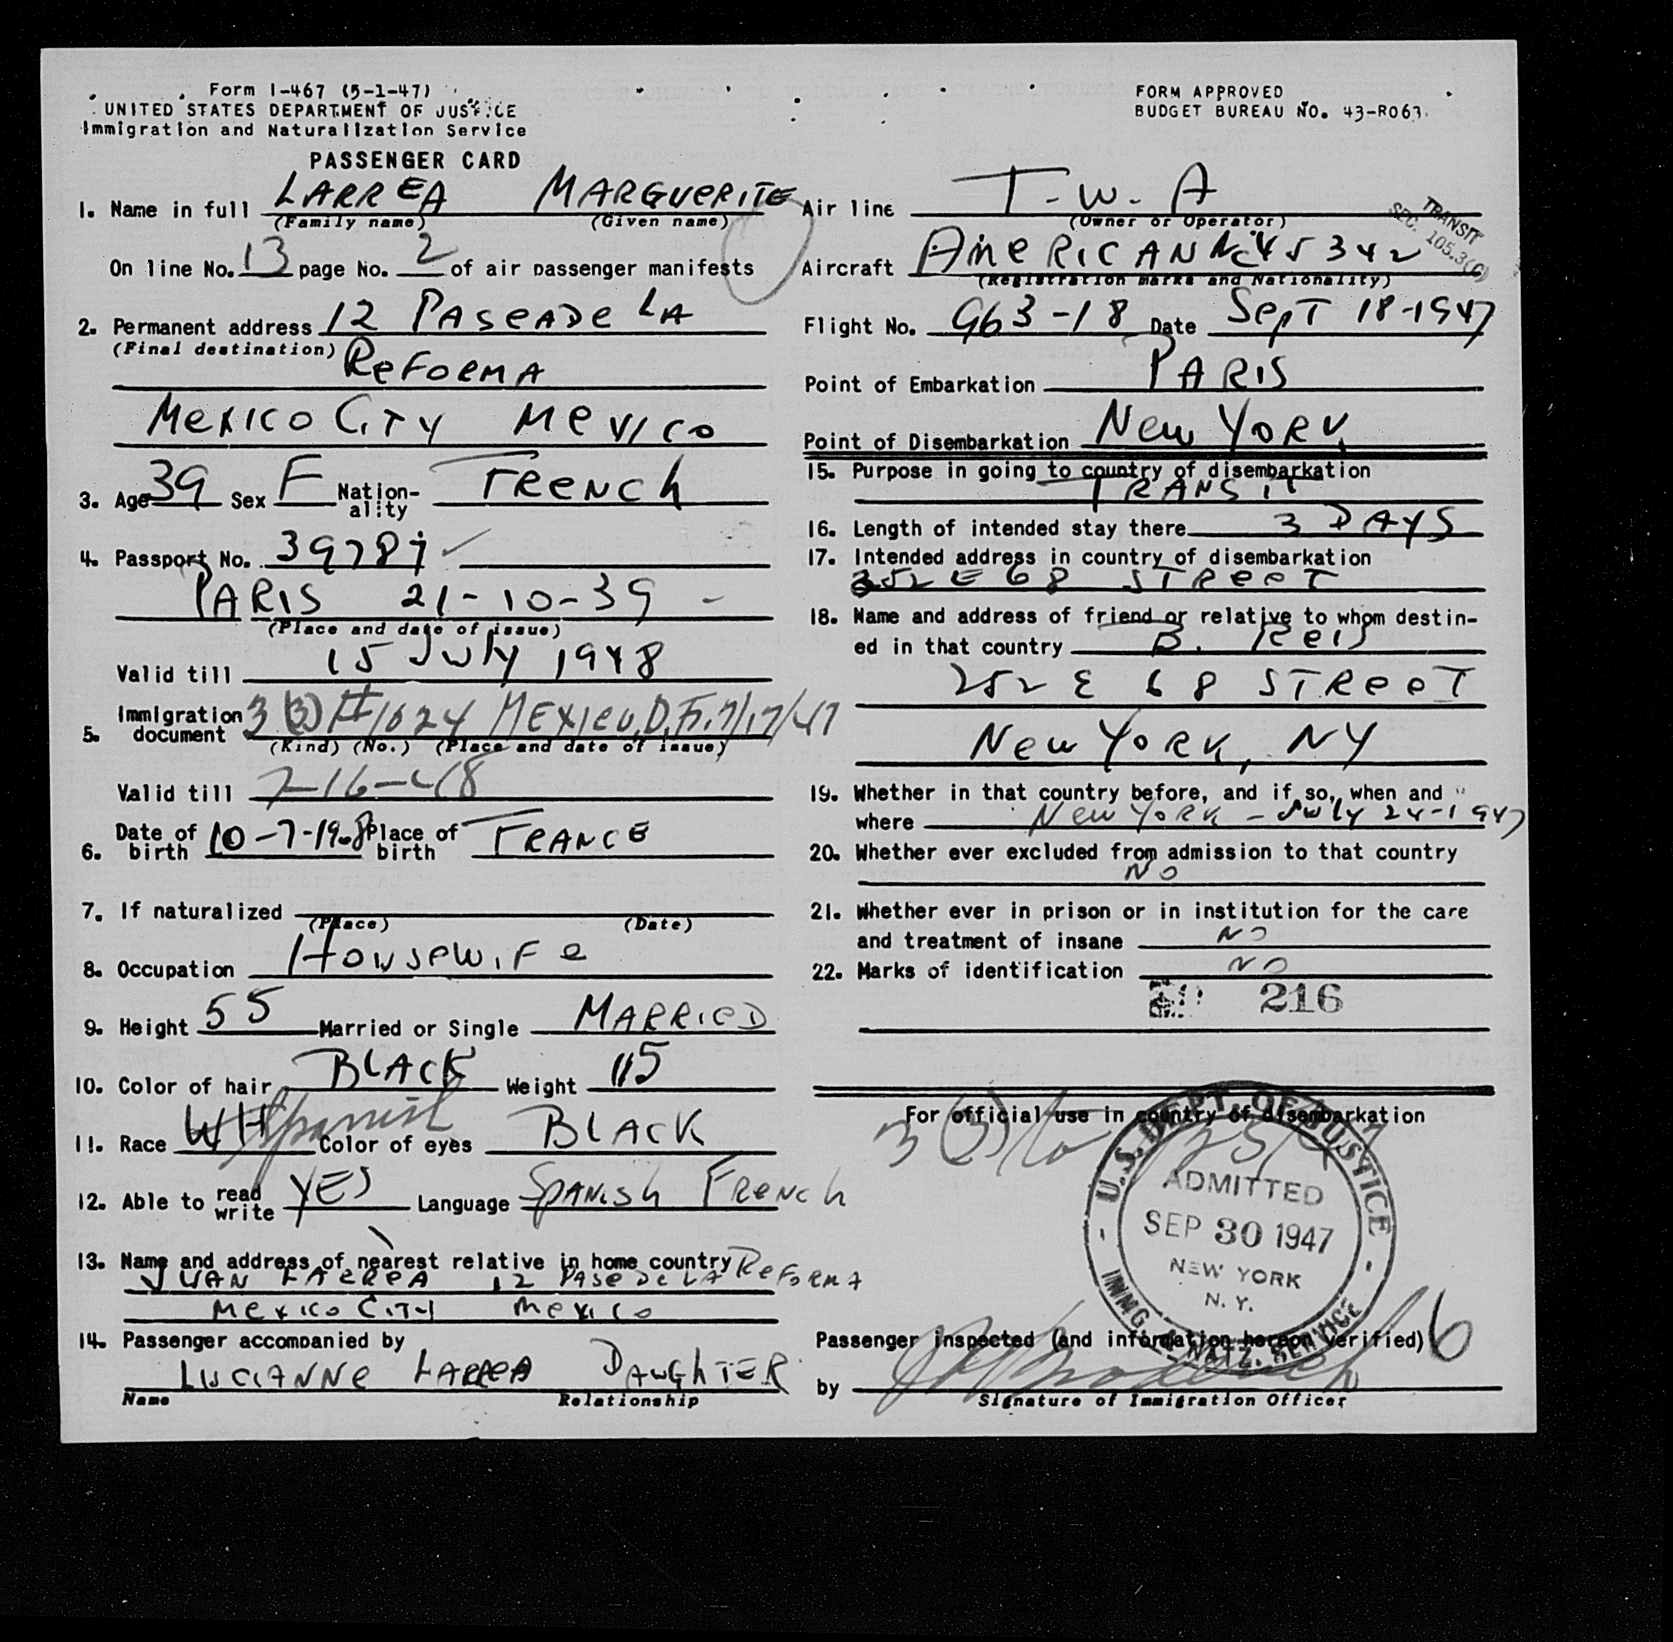 Form I-467 (5-1-47)
UNITED STATES DEPARTMENT OF JUSTICE
Immigration and Naturalization Service
PASSENGER CARD
FORM APPROVED
BUDGET BUREAU NO. 43-R063.
1. Name in full LARREA MARGUERITE
(Family name) (Given name)
On line No. 13 page No. 2 of air passenger manifests
2. Permanent address 12 PASEADE LA
(Final destination) REFORMA
MEXICO CITY MEXICO
3. Age 39 Sex F Nation-ality FRENCH
4. Passport No. 39787 ✓
PARIS 21-10-39 -
(Place and date of issue)
Valid till 15 JULY 1948
5. Immigration document 3(3) #1024 MEXICO, D.F. 7/17/47
(Kind) (No.) (Place and date of issue)
Valid till 7-16-48
6. Date of birth 10-7-1908 Place of birth FRANCE
7. If naturalized
(Place) (Date)
8. Occupation HOUSEWIFE
9. Height 55 Married or Single MARRIED
10. Color of hair BLACK Weight 115
11. Race WH Spanish Color of eyes BLACK
12. Able to read write YES Language SPANISH FRENCH
13. Name and address of nearest relative in home country REFORMA
JUAN LARREA 12 PASEDE LA
MEXICO CITY MEXICO
14. Passenger accompanied by
LUCIANNE LARREA DAUGHTER
Name Relationship
Air line T.W.A
(Owner or Operator)
TRANSIT
SEC. 105.3(C)
Aircraft AMERICAN NC45342
(Registration marks and Nationality)
Flight No. 963-18 Date SEPT 18-1947
Point of Embarkation PARIS
Point of Disembarkation NEW YORK
15. Purpose in going to country of disembarkation
TRANSIT
16. Length of intended stay there 3 DAYS
17. Intended address in country of disembarkation
252 E 68 STREET
18. Name and address of friend or relative to whom destin-
ed in that country B. REIS
252 E 68 STREET
NEW YORK, NY
19. Whether in that country before, and if so, when and
where NEW YORK - JULY 24-1947
20. Whether ever excluded from admission to that country
NO
21. Whether ever in prison or in institution for the care
and treatment of insane NO
22. Marks of identification NO
216
For official use in country of disembarkation
U.S. DEPT. OF JUSTICE
ADMITTED
SEP 30 1947
NEW YORK
N. Y.
IMMG. & NATZ. SERVICE
Passenger inspected (and information hereon verified) 6
by
Signature of Immigration Officer